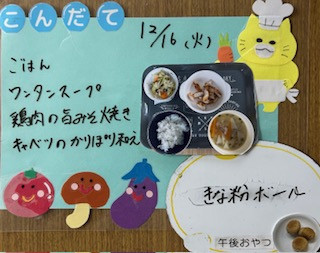 こんだて
12/16（火）
ごはん
ワンタンスープ
鶏肉の旨みそ焼き
キャベツのかりぽり和え
きな粉ボール
午後おやつ